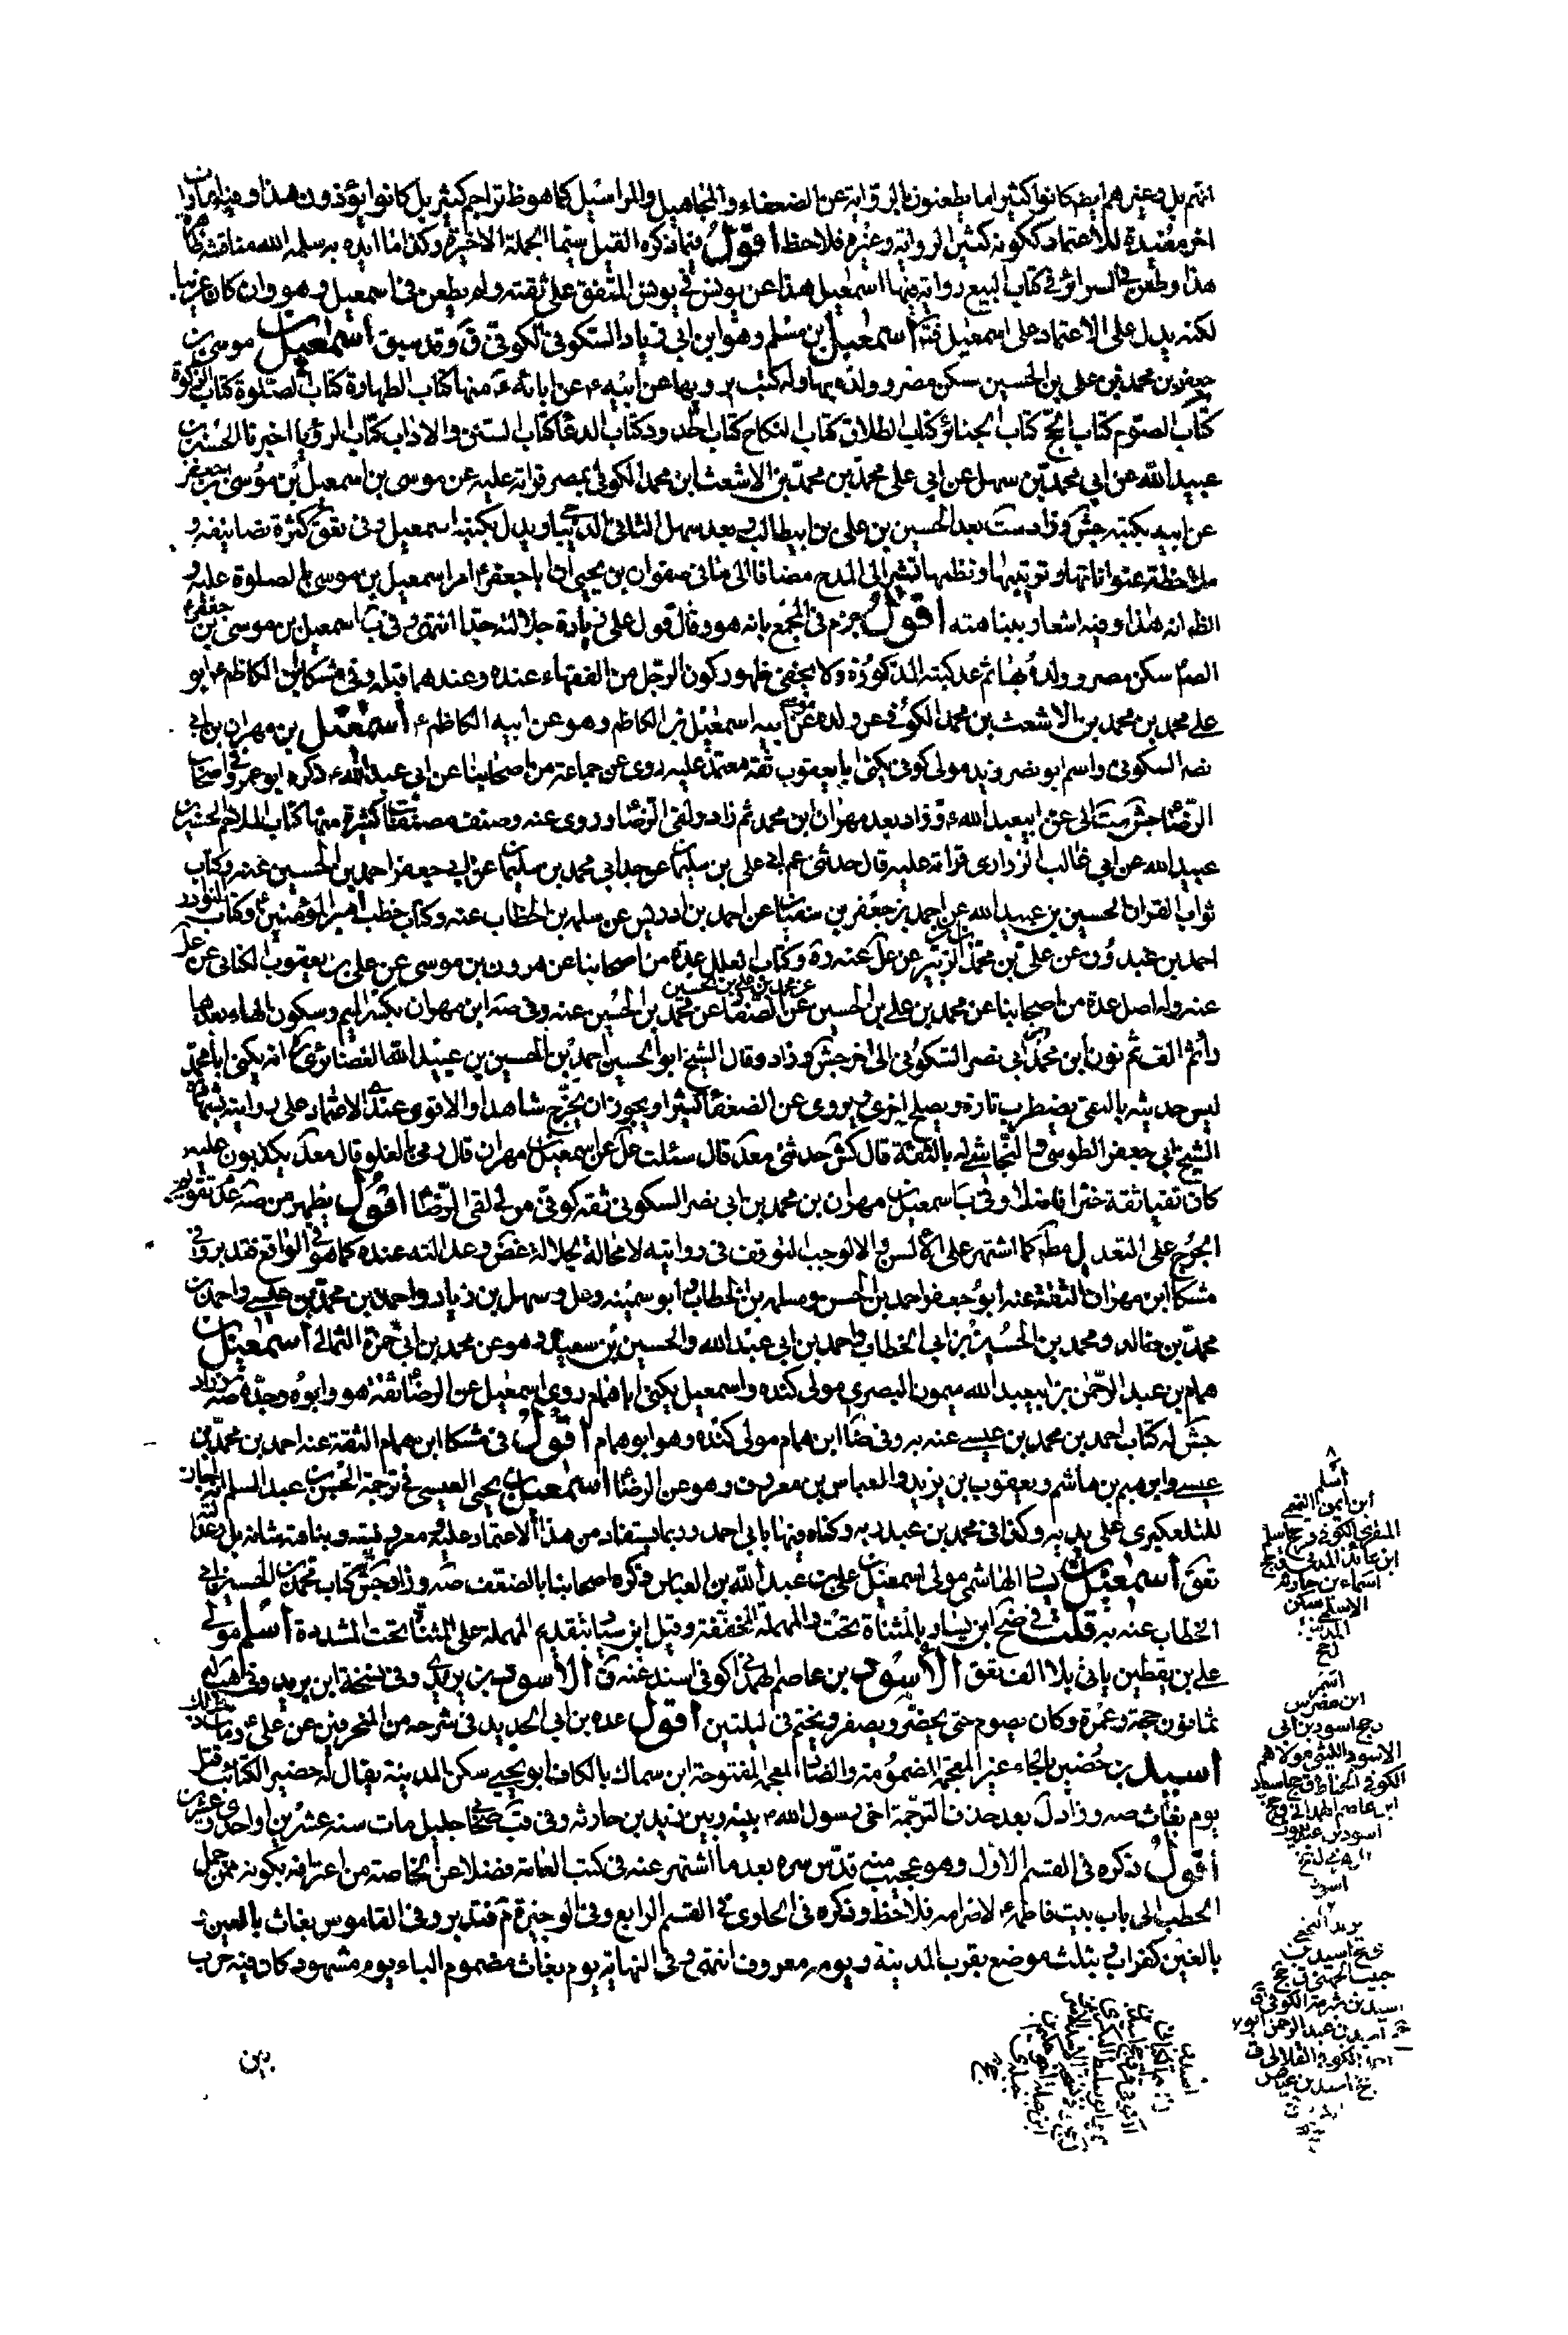 انهم بل وغيرهم ايضا كانوا كثيرا ما يطعنون بالرواية عن الضعفاء والمجاهيل والمراسيل كما هو ظ تراجم كثير بل كانوا يؤذون هذا وفيه امارات
اخر مفيدة للاعتماد ككونه كثير الرواية وغيره فلاحظ اقول فيما ذكره القيل سيما الجملة الاخيرة وكذا ما ايده به سلمه الله مناقشة ظاهرة
هذا وطعن في السرائر في كتاب البيع رواية فيها اسمعيل هذا عن يونس في يونس المتفق على ثقته ولم يطعن في اسمعيل وهو وان كان غريبا
لكنه يدل على الاعتماد على اسمعيل فتم اسمعيل بن مسلم وهو ابن ابي زياد السكوني الكوفي ق وقد سبق اسمعيل بن موسى بن
جعفر بن محمد بن علي بن الحسين سكن مصر وولده بها وله كتب يرويها عن ابيه ع عن ابائه ع منها كتاب الطهارة كتاب الصلوة كتاب الزكوة
كتاب الصوم كتاب الحج كتاب الجنائز كتاب الطلاق كتاب النكاح كتاب الحدود كتاب الدعا كتاب السنن والاداب كتاب الرؤيا اخبرنا الحسين بن
عبيد الله عن ابي محمد بن سهل عن ابي علي محمد بن محمد بن الاشعث ابن محمد الكوفي بمصر قراءة عليه عن موسى بن اسمعيل بن موسى بن جعفر
عن ابيه بكتبه جش وزاد ست بعد الحسين بن علي بن ابيطالب وبعد سهل الثاني الديباجي وبدل بكتبه اسمعيل وفي تعق كثرة تصانيفه و
ملاحظة عنواناتها وترتيبها ونظمها تشير الى المدح مضافا الى ما في صفوان بن يحيى ان ابا جعفر ع امر اسمعيل بن موسى بالصلوة عليه و
الظ انه هذا وفيه اشعار بنباهته اقول جزم في المجمع بانه هو وقال قول على زيادة جلالته جدا انتهى وفي ب اسمعيل بن موسى بن جعفر
الصا سكن مصر وولده بها ثم عد كتبه المذكورة ولا يخفى ظهور كون الرجل من الفقهاء عنده وعندهما قبله وفي مشكا ابن الكاظم ع ابو
علي محمد بن محمد بن الاشعث بن محمد الكوفي عن ولده موسى عن ابيه اسمعيل بن الكاظم وهو عن ابيه الكاظم ع اسمعيل بن مهران بن ابي
نصر السكوني واسم ابو نصر زيد مولى كوفي يكنى ابا يعقوب ثقة معتمد عليه روى عن جماعة من اصحابنا عن ابي عبد الله ع ذكره ابو عمرو في اصحاب
الرضا جش ست الى عن ابيعبد الله ع وزاد بعد مهران ابن محمد ثم زاد ولقى الرضا وروى عنه وصنف مصنفات كثيرة منها كتاب الملاحم الحسين بن
عبيد الله عن ابي غالب الزراري قراءة عليه قال حدثني عم ابي علي بن سليمان عن جد ابي محمد بن سليمان عن ابي جعفر احمد بن الحسين عنه وكتاب
ثواب القران الحسين بن عبيد الله عن احمد بن جعفر بن سفيان عن احمد بن ادريس عن سلمة بن الخطاب عنه وكتاب خطب امير المؤمنين ع وكتاب النوادر
احمد بن عبدون عن علي بن محمد بن الزبير عن عل عنه وكتاب العلل عدة من اصحابنا عن هرون بن موسى عن علي بن يعقوب الكناني عن عل
عنه وله اصل عدة من اصحابنا عن محمد بن علي بن الحسين عن الصفا عن محمد بن الحسين عنه وفي صه ابن مهران بكسر الميم وسكون الهاء بعدها
راء ثم الف ثم نون ابن محمد بن ابي نصر السكوني الى اخر جش وزاد وقال الشيخ ابو الحسين احمد بن الحسين بن عبيد الله الغضائري انه يكنى ابا محمد
ليس حديثه بالنقي يضطرب تارة ويصلح اخرى ويروي عن الضعفا كثيرا ويجوز ان يخرج شاهدا والاقوى عندي الاعتماد على روايته لشهادة
الشيخ ابي جعفر الطوسي والنجاشي له بالثقة قال كش حدثني محمد قال سئلت عل عن اسمعيل بن مهران قال رمي بالغلو قال محمد يكذبون عليه
كان تقيا ثقة خيرا فاضلا وفي ب اسمعيل بن مهران بن محمد بن ابي نصر السكوني ثقة كوفي مولى لقى الرضا اقول يظهر من صه عدم تقديم
الجرح على التعديل مط كما اشتهر على الالسن والا لوجب التوقف في روايته لا محالة لجلالة غض وعدالته عنده كما هو في الواقع فتدبر وفي
مشكا ابن مهران الثقة عنه ابو جعفر احمد بن الحسن وسلمة بن الخطاب وابو سمينه وعل وسهل بن زياد واحمد بن محمد بن عيسى واحمد بن
محمد بن خالد ومحمد بن الحسين بن ابي الخطاب واحمد بن ابي عبد الله والحسين بن سعيد وهو عن محمد بن ابي حمزة الثمالي اسمعيل بن
همام بن عبد الرحمن بن ابيعبد الله ميمون البصري مولى كنده واسمعيل يكنى ابا همام روى اسمعيل عن الرضا ثقة هو وابوه وجده صه وزاد
جش له كتاب احمد بن محمد بن عيسى عنه به وفي ضا ابن همام مولى كنده وهو ابو همام اقول في مشكا ابن همام الثقة عنه احمد بن محمد بن
عيسى وابرهيم بن هاشم ويعقوب بن يزيد والعباس بن معروف وهو عن الرضا اسمعيل بن يحيى العبسي في ترجمة الحسن بن عبد السلم انه اجاز
للتلعكبري على يديه وكذا في محمد بن عبد ربه وكناه فيها بابي احمد وربما يستفاد من هذا الاعتماد عليه ومعروفيته ونباهة شانه بل وعدالته
تعق اسمعيل بن يسار الهاشمي مولى اسمعيل بن علي بن عبد الله بن العباس ذكره اصحابنا بالضعف صه وزاد جش له كتاب محمد بن الحسين بن ابي
الخطاب عنه به قلت في ضح ابن يسار بالمثناة تحت والمهملة المخففة وقيل ابن سيار بتقديم المهملة على المثناة تحت المشددة اسلم مولى
علي بن يقطين ياتي بلا الف تعق الاسود بن عاصم الهمداني كوفي اسند عنه ق الاسود بن يزيد ي وفي نسخة ابن بريد وفي هب
ثمانون حجة وعمرة وكان يصوم حتى يخضر ويصفر ويختم في ليلتين اقول عده ابن ابي الحديد في شرحه من المنحرفين عن علي ع ومات على ذلك
اسيد بن حضين بالحاء غير المعجمة المضمومة والضاد المعجمة المفتوحة ابن سماك بالكاف ابو يحيى سكن المدينة يقال له حضير الكتائب قتل
يوم بغاث صه وزاد ل بعد حذف الترجمة اخى رسول الله ص بينه وبين زيد بن حارثه وفي قب صحابي جليل مات سنه عشرين او احدى وعشرين
اقول ذكره في القسم الاول وهو عجيب منه قدس سره بعد ما اشتهر عنه في كتب العامة فضلا عن الخاصة من اعترافه بكونه ممن حمل
الحطب الى باب بيت فاطمة ع لاضرامه فلاحظ وذكره في الحاوي في القسم الرابع وفي الوجيزة م فتدبر وفي القاموس بغاث بالعين
بالغين كغراب ويثلث موضع بقرب المدينة ويومه معروف انتهى وفي النهاية يوم بغاث مضموم الباء يوم مشهور كان فيه حرب
بين
اسلم
ابن ايمن التميمي
المنقري الكوفي ق جخ اسلم
ابن عائذ المدني ق جخ
اسماء بن حارثه
الاسلمي سكن
المدينة
ل جخ
اسمر
ابن مضرس
ل جخ اسود بن ابي
الاسود الليثي مولاهم
الكوفي الخياط ق جخ اسود
ابن عاصم الهمداني ق جخ